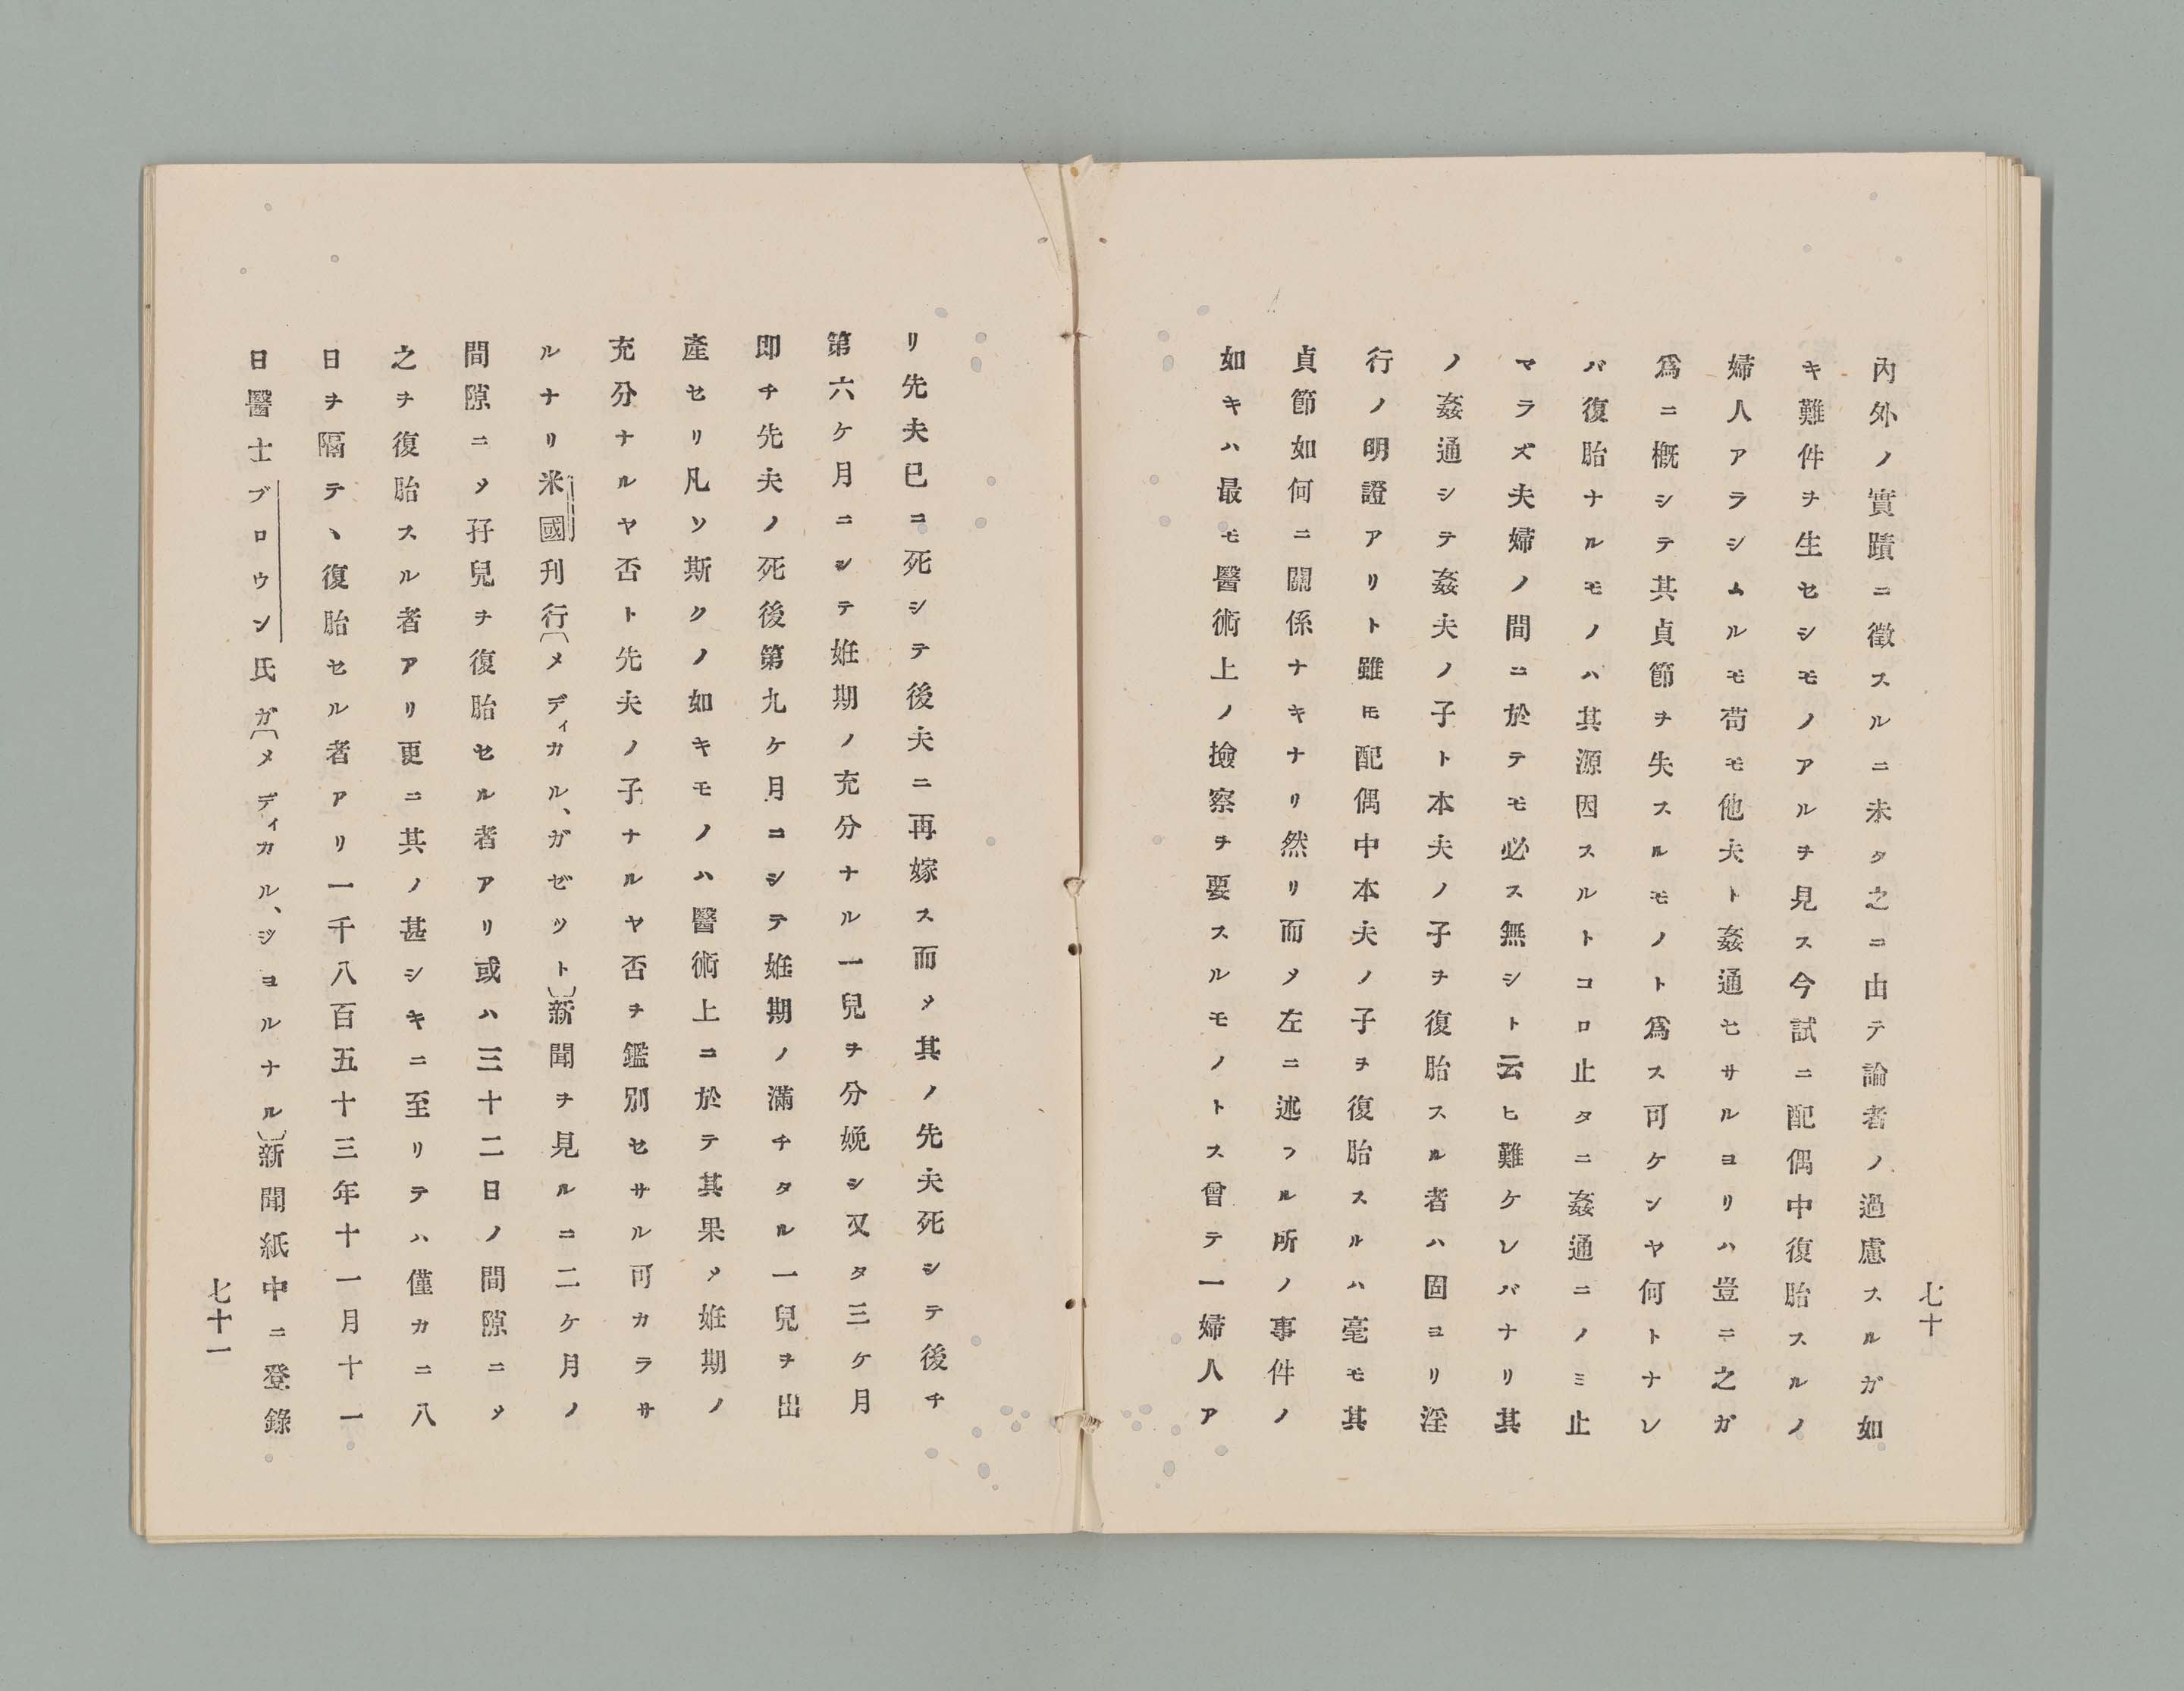 七十
內外ノ實蹟ニ徵スルニ未タ之ニ由テ論者ノ過慮スルガ如
キ難件ヲ生セシモノアルヲ見ス今試ニ配偶中復胎スルノ
婦人アラシムルモ苟モ他夫ト姦通セサルヨリハ豈ニ之ガ
爲ニ槪シテ其貞節ヲ失スルモノト爲ス可ケンヤ何トナレ
バ復胎ナルモノハ其源因スルトコロ止タニ姦通ニノミ止
マラズ夫婦ノ間ニ於テモ必ス無シト云ヒ難ケレバナリ其
ノ姦通シテ姦夫ノ子ト本夫ノ子ヲ復胎スル者ハ固ヨリ淫
行ノ明證アリト雖𪜈配偶中本夫ノ子ヲ復胎スルハ毫モ其
貞節如何ニ關係ナキナリ然リ而〆左ニ述フル所ノ事件ノ
如キハ最モ醫術上ノ撿察ヲ要スルモノトス曾テ一婦人ア
リ先夫已ニ死シテ後夫ニ再嫁ス而〆其ノ先夫死シテ後チ
第六ケ月ニシテ姙期ノ充分ナル一兒ヲ分娩シ又タ三ケ月
即チ先夫ノ死後第九ケ月ニシテ姙期ノ滿チタル一兒ヲ出
產セリ凡ソ斯クノ如キモノハ醫術上ニ於テ其果〆姙期ノ
充分ナルヤ否ト先夫ノ子ナルヤ否ヲ鑑別セサル可カラサ
ルナリ米國刊行〔メディカル、ガゼット〕新聞ヲ見ルニ二ケ月ノ
間隙ニ〆孖兒ヲ復胎セル者アリ或ハ三十二日ノ間隙ニ〆
之ヲ復胎スル者アリ更ニ其ノ甚シキニ至リテハ僅カニ八
日ヲ隔テヽ復胎セル者アリ一千八百五十三年十一月十一
日醫士ブロウン氏ガ〔メディカル、ジヨルナル〕新聞紙中ニ登錄
七十一